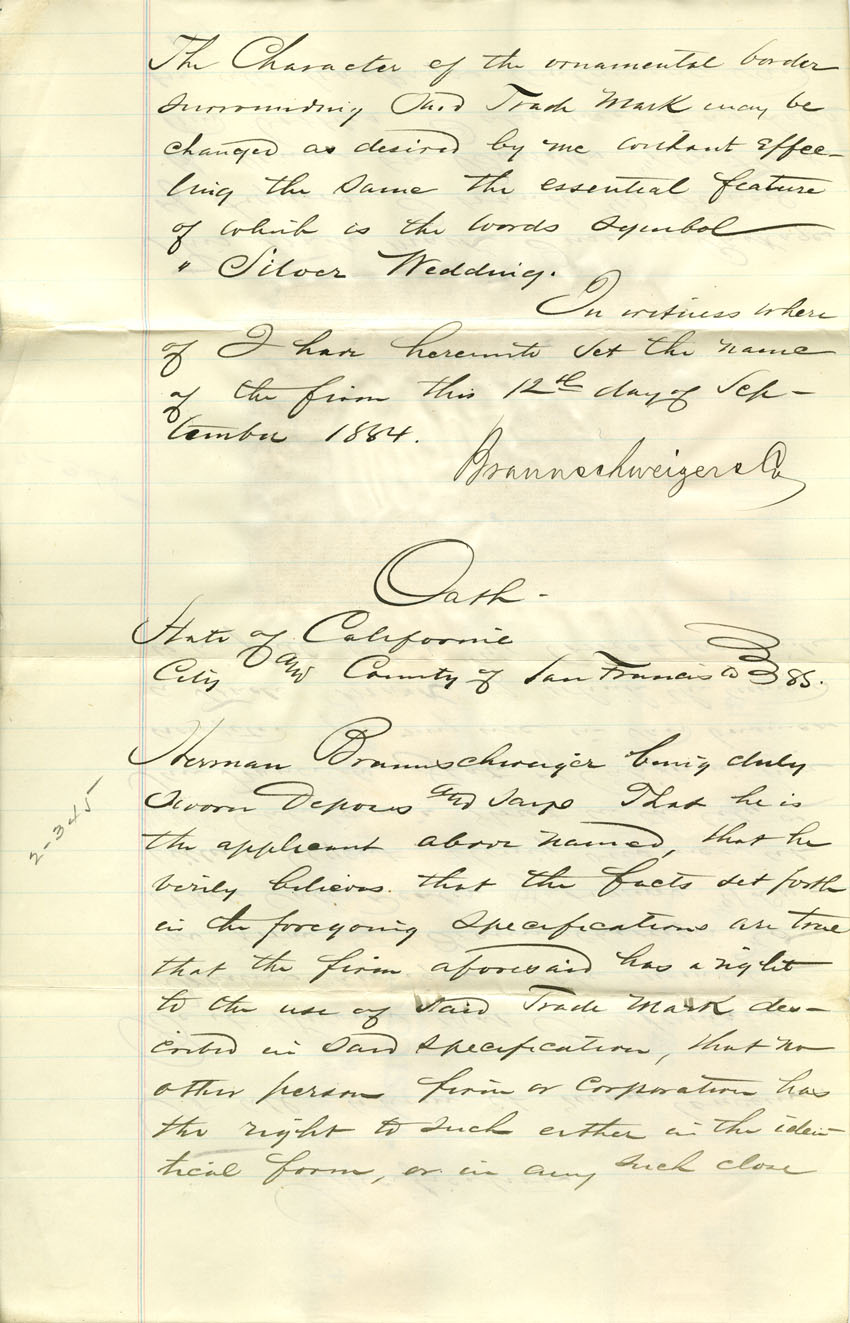 The Character of the ornamental border
surrounding Said Trade Mark may be
changed as desired by me without Effec-
ting the same the essential feature
of which is the words symbol
" Silver Wedding.
In witness where
of I have hereunto set the name
of the firm this 12th day of Sep-
tember 1884.
Braunschweiger & Co
Oath -
State of California
City and County of San Francisco } SS.
Herman Braunschweiger being duly
sworn Deposes and says That he is
the applicant above named, that he
verily believes that the facts set forth
in the foregoing specifications are true
that the firm aforesaid has a right
to the use of Said Trade Mark des-
cribed in Said specification, that no
other person firm or corporation has
the right to such either in the iden
tical form, or in any such close
2-345